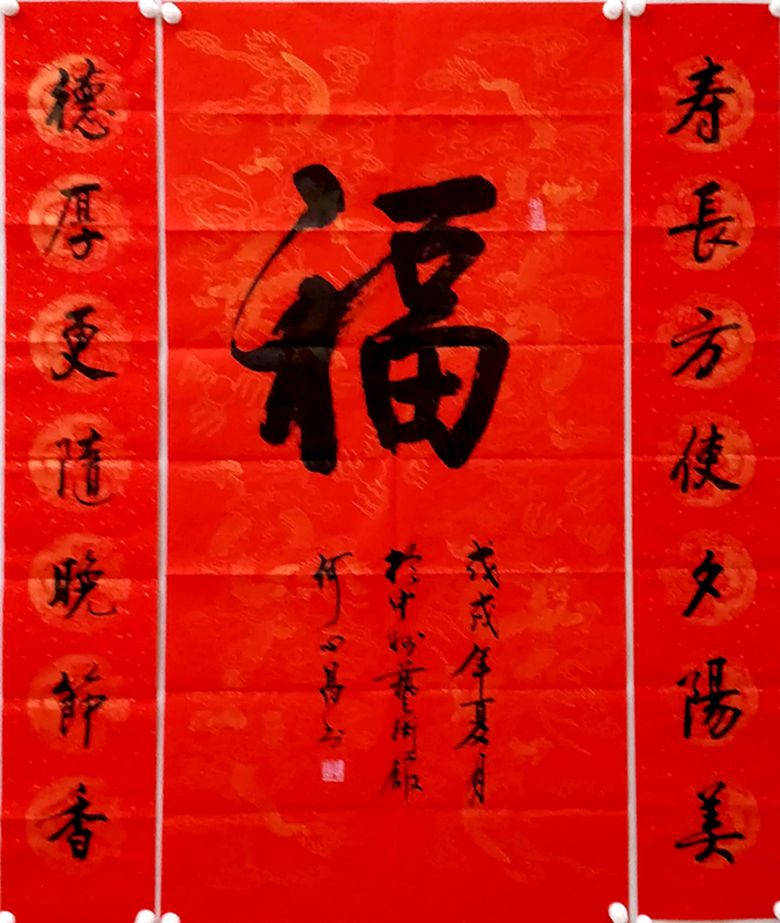 寿長方使夕陽美
福
戊戌年夏月
於中州藝術館
何昌书
德厚更隨晚節香